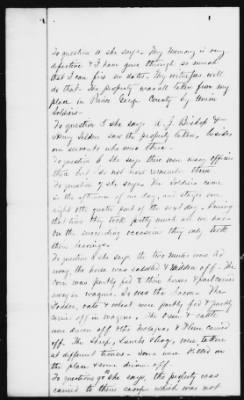 To question 4 she says. My memory is very
defective & I have gone through so much
that I can fix no dates. My witnesses will
do that. The property was all taken from my
place in Prince Geo County by Union
Soldiers.
To question 5 she says A. J. Bishop &
Mary Selden saw the property taken, besides
our servants who were there.
To question 6 she says there were many officers
there but do not now remember them.
To question 7 she says The Soldiers came
in the afternoon of one day, and stayed over
night & the greater part of the next day & during
that time they took pretty much all we had
On the succeeding occasion they only took
their leavings.
To question 8 she says the two mules were
way, the horse was saddled & ridden off. The
corn was partly fed to their horses & part carried
away in wagons. So was the Bacon. The
fodder, oats & wheat were partly fed & partly
carried off in wagons. The oxen & cattle
were driven off & the Potatoes & Flour carried
off. The Sheep, Lambs & Hogs, were taken
at different times. Some were killed on
the place & some driven off.
To question 9 she says, the property was
carried to their camp which was not